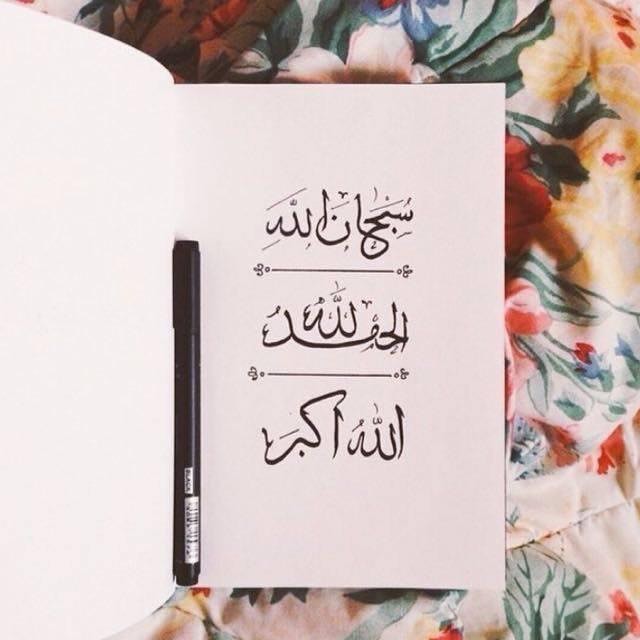 سُبْحَانَ اللّٰهِ
الحَمْدُ للّٰهِ
اللّٰهُ اكْبَرَ
BLACK